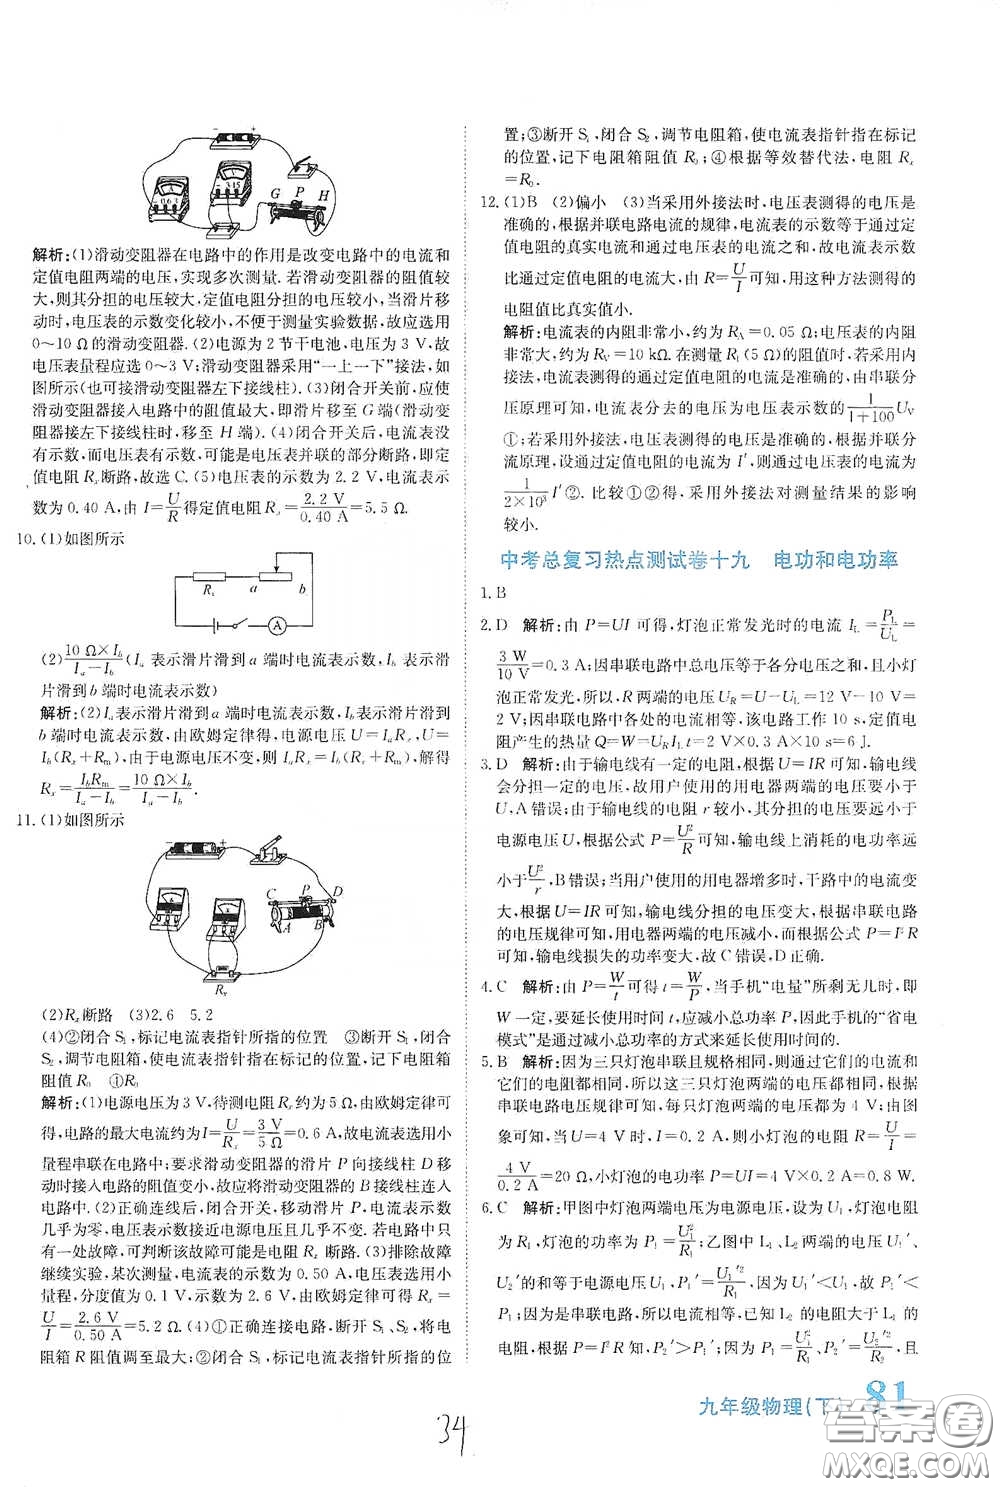 解析:(1)滑动变阻器在电路中的作用是改变电路中的电流和
定值电阻两端的电压,实现多次测量.若滑动变阻器的阻值较
大,则其分担的电压较大,定值电阻分担的电压较小,当滑片移
动时,电压表的示数变化较小,不便于测量实验数据,故应选用
0～10 Ω的滑动变阻器.(2)电源为2节干电池,电压为3 V,故
电压表量程应选0～3 V;滑动变阻器采用“一上一下”接法,如
图所示(也可接滑动变阻器左下接线柱).(3)闭合开关前,应使
滑动变阻器接入电路中的阻值最大,即滑片移至G端(滑动变
阻器接左下接线柱时,移至H端).(4)闭合开关后,电流表没
有示数,而电压表有示数,可能是电压表并联的部分断路,即定
值电阻Rx断路,故选C.(5)电压表的示数为2.2 V,电流表示
数为0.40 A,由I=U/R得定值电阻Rx=2.2 V/0.40 A=5.5 Ω.
10.(1)如图所示
Rx a b
A
(2)10 Ω×Ib/(Ia-Ib)(Ia表示滑片滑到a端时电流表示数,Ib表示滑
片滑到b端时电流表示数)
解析:(2)Ia表示滑片滑到a端时电流表示数,Ib表示滑片滑到
b端时电流表示数,由欧姆定律得,电源电压U=IaRx,U=
Ib(Rx+Rm),由于电源电压不变,则IaRx=Ib(Rx+Rm),解得
Rx=IbRm/(Ia-Ib)=10 Ω×Ib/(Ia-Ib)
11.(1)如图所示
C P D
A B
Rx
(2)Rx断路 (3)2.6 5.2
(4)②闭合S1,标记电流表指针所指的位置 ③断开S1,闭合
S2,调节电阻箱,使电流表指针指在标记的位置,记下电阻箱
阻值R0 ④R0
解析:(1)电源电压为3 V,待测电阻Rx约为5 Ω,由欧姆定律可
得,电路的最大电流约为I=U/Rx=3 V/5 Ω=0.6 A,故电流表选用小
量程串联在电路中;要求滑动变阻器的滑片P向接线柱D移
动时电路的阻值变小,故应将滑动变阻器的B接线柱连入
电路中.(2)正确连线后,闭合开关,移动滑片P,电流表示数
几乎为零,电压表示数接近电源电压且几乎不变.若电路中
只有一处故障,可判断该故障可能是电阻Rx断路.(3)排除故障
继续实验,某次测量,电流表的示数为0.50 A,电压表选用小
量程,分度值为0.1 V,示数为2.6 V,由欧姆定律可得Rx=
U/I=2.6 V/0.50 A=5.2 Ω.(4)①正确连接电路,断开S1、S2,将电
阻箱R阻值调至最大;②闭合S1,标记电流表指针所指的位
置;③断开S1,闭合S2,调节电阻箱,使电流表指针指在标记
的位置,记下电阻箱阻值R0;④根据等效替代法,电阻Rx
=R0.
12.(1)B (2)偏小 (3)当采用外接法时,电压表测得的电压是
准确的,根据并联电路电流的规律,电流表的示数等于通过定
值电阻的真实电流和通过电压表的电流之和,故电流表示数
比通过定值电阻的电流大,由R=U/I可知,用这种方法测得的
电阻值比真实值小.
解析:电流表的内阻非常小,约为RA=0.05 Ω;电压表的内阻
非常大,约为RV=10 kΩ.在测量R1(5 Ω)的阻值时,若采用内
接法,电流表测得的通过定值电阻的电流是准确的,由串联分
压原理可知,电流表分去的电压为电压表示数的1/(1+100)UV
①;若采用外接法,电压表测得的电压是准确的,根据并联分
流原理,设通过定值电阻的电流为I′,则通过电压表的电流为
1/(2×10³)I′②.比较①②得,采用外接法对测量结果的影响
较小.
中考总复习热点测试卷十九 电功和电功率
1.B
2.D 解析:由P=UI可得,灯泡正常发光时的电流IL=PL/UL=
3 W/10 V=0.3 A;因串联电路中总电压等于各分电压之和,且小灯
泡正常发光,所以,R两端的电压UR=U-UL=12 V-10 V=
2 V;因串联电路中各处的电流相等,该电路工作10 s,定值电
阻产生的热量Q=W=URILt=2 V×0.3 A×10 s=6 J.
3.D 解析:由于输电线有一定的电阻,根据U=IR可知,输电线
会分担一定的电压,故用户使用的用电器两端的电压要小于
U,A错误;由于输电线的电阻r较小,其分担的电压要远小于
电源电压U,根据公式P=U²/R可知,输电线上消耗的电功率远
小于U²/r,B错误;当用户使用的用电器增多时,干路中的电流变
大,根据U=IR可知,输电线分担的电压变大,根据串联电路
的电压规律可知,用电器两端的电压减小,而根据公式P=I²R
可知,输电线损失的功率变大,故C错误,D正确.
4.C 解析:由P=W/t可得t=W/P,当手机“电量”所剩无几时,即
W一定,要延长使用时间t,应减小总功率P,因此手机的“省电
模式”是通过减小总功率的方式来延长使用时间的.
5.B 解析:因为三只灯泡串联且规格相同,则通过它们的电流和
它们的电阻都相同,所以这三只灯泡两端的电压都相同,根据
串联电路电压规律可知,每只灯泡两端的电压都为4 V;由图
象可知,当U=4 V时,I=0.2 A,则小灯泡的电阻R=U/I=
4 V/0.2 A=20 Ω,小灯泡的电功率P=UI=4 V×0.2 A=0.8 W.
6.C 解析:甲图中灯泡两端电压为电源电压,设为U1,灯泡电阻
为R1,灯泡的功率为P1=U1²/R1;乙图中L1、L2两端的电压U1′、
U2′的和等于电源电压U1,P1′=U1′²/R1,因为U1′<U1,故P1′<
P1;因为是串联电路,所以电流相等,已知L2的亮度大于L1的
亮度,根据P=I²R知,P2′>P1′;因为P1=U1²/R1,P2′=U2′²/R2,且
九年级物理(下) 81
34
答案圈
MXQE.COM